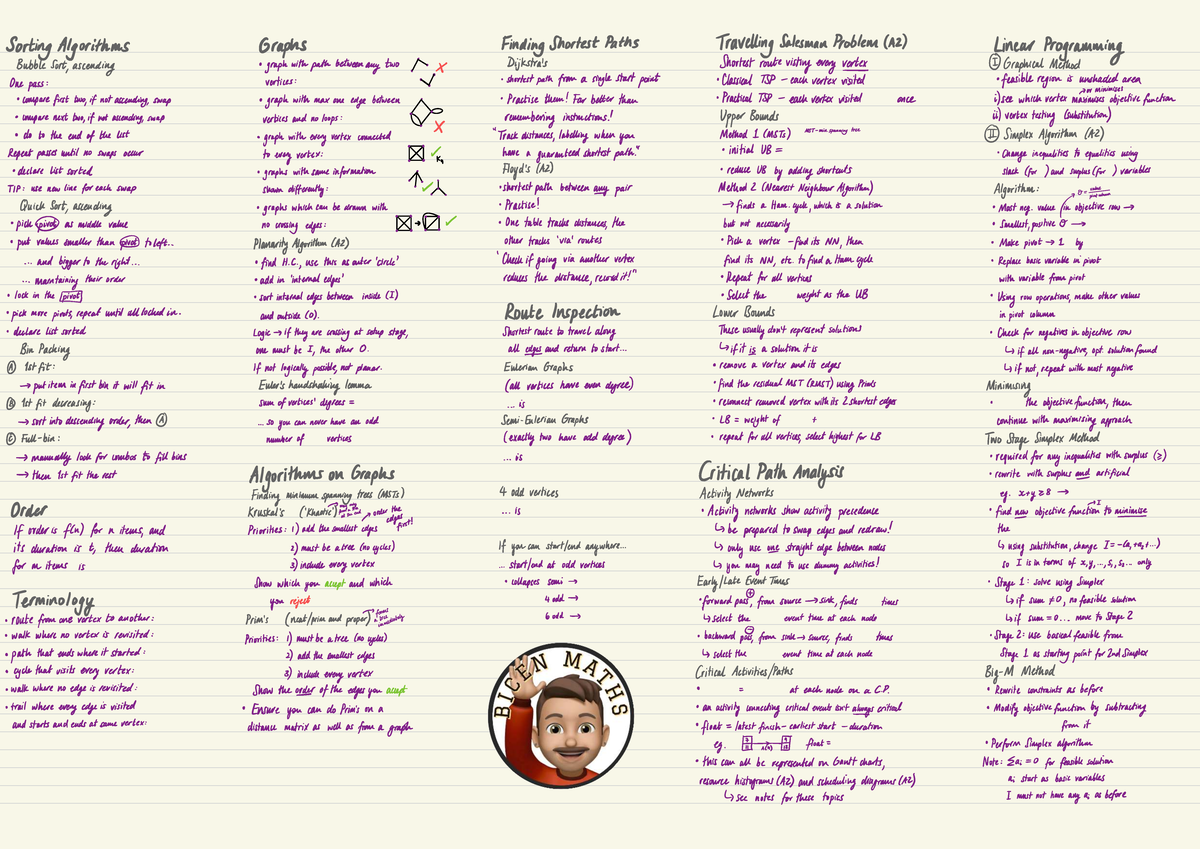 Sorting Algorithms
Bubble Sort, ascending
One pass:
• compare first two, if not ascending, swap
• compare next two, if not ascending, swap
• do to the end of the list
Repeat passes until no swaps occur
• declare list sorted
TIP: use new line for each swap
Quick Sort, ascending
• pick pivot as middle value
• put values smaller than pivot to left..
... and bigger to the right...
... maintaining their order
• lock in the pivot
• pick more pivots, repeat until all locked in.
• declare list sorted
Bin Packing
A 1st fit:
→ put item in first bin it will fit in
B 1st fit decreasing:
→ sort into descending order, then A
C Full-bin:
→ manually look for combos to fill bins
→ then 1st fit the rest
Order
If order is f(n) for n items, and
its duration is t, then duration
for m items is
Terminology
• route from one vertex to another:
• walk where no vertex is revisited:
• path that ends where it started:
• cycle that visits every vertex:
• walk where no edge is revisited:
• trail where every edge is visited
and starts and ends at same vertex:
Graphs
• graph with path between any two
vertices:
• graph with max one edge between
vertices and no loops:
• graph with every vertex connected
to every vertex:
K4
• graphs with same information
shown differently:
• graphs which can be drawn with
no crossing edges:
Planarity Algorithm (A2)
• find H.C., use this as outer 'circle'
• add in 'internal edges'
• sort internal edges between inside (I)
and outside (O).
Logic → if they are crossing at setup stage,
one must be I, the other O.
If not logically possible, not planar.
Euler's handshaking lemma
sum of vertices' degrees =
... so you can never have an odd
number of vertices
Algorithms on Graphs
Finding minimum spanning trees (MSTs)
Kruskal's ('Khaotic')
Priorities: 1) add the smallest edges → order the edges first!
2) must be a tree (no cycles)
3) include every vertex
Show which you accept and which
you reject
Prim's (neat/prim and proper)
Priorities: 1) must be a tree (no cycles)
2) add the smallest edges
3) include every vertex
Show the order of the edges you accept
• Ensure you can do Prim's on a
distance matrix as well as from a graph
Finding Shortest Paths
Dijkstra's
• shortest path from a single start point
• Practise them! Far better than
remembering instructions!
"Track distances, labelling when you
have a guaranteed shortest path."
Floyd's (A2)
• shortest path between any pair
• Practise!
• One table tracks distances, the
other tracks 'via' routes
"Check if going via another vertex
reduces the distance, record it!"
Route Inspection
Shortest route to travel along
all edges and return to start...
Eulerian Graphs
(all vertices have even degree)
... is
Semi-Eulerian Graphs
(exactly two have odd degree)
... is
4 odd vertices
... is
If you can start/end anywhere...
... start/end at odd vertices
• collapses semi →
4 odd →
6 odd →
BICEN MATHS
Travelling Salesman Problem (A2)
Shortest route visiting every vertex
• Classical TSP – each vertex visited
• Practical TSP – each vertex visited once
Upper Bounds
Method 1 (MSTs) MST = min. spanning tree
• initial UB =
• reduce UB by adding shortcuts
Method 2 (Nearest Neighbour Algorithm)
→ finds a Ham. cycle, which is a solution
but not necessarily
• Pick a vertex – find its NN, then
find its NN, etc. to find a Ham cycle
• Repeat for all vertices
• Select the weight as the UB
Lower Bounds
These usually don't represent solutions
↳ if it is a solution it is
• remove a vertex and its edges
• find the residual MST (RMST) using Prims
• reconnect removed vertex with its 2 shortest edges
• LB = weight of +
• repeat for all vertices, select highest for LB
Critical Path Analysis
Activity Networks
• Activity networks show activity precedence
↳ be prepared to swap edges and redraw!
↳ only use one straight edge between nodes
↳ you may need to use dummy activities!
Early/Late Event Times
• forward pass, from source → sink, finds times
↳ select the event time at each node
• backward pass, from sink → source, finds times
↳ select the event time at each node
Critical Activities/Paths
• = at each node on a C.P.
• an activity connecting critical events isn't always critical
• float = latest finish - earliest start - duration
eg. float =
• this can all be represented on Gantt charts,
resource histograms (A2) and scheduling diagrams (A2)
↳ see notes for these topics
Linear Programming
I Graphical Method
• feasible region is unshaded area
or minimises
i) see which vertex maximises objective function
ii) vertex testing (substitution)
II Simplex Algorithm (A2)
• Change inequalities to equalities using
slack (for ) and surplus (for ) variables
Algorithm: θ = value / pivot column
• Most neg. value in objective row →
• Smallest, positive θ →
• Make pivot → 1 by
• Replace basic variable in pivot
with variable from pivot
• Using row operations, make other values
in pivot column
• Check for negatives in objective row
↳ if all non-negative, opt. solution found
↳ if not, repeat with most negative
Minimising
• the objective function, then
continue with maximising approach
Two Stage Simplex Method
• required for any inequalities with surplus (≥)
• rewrite with surplus and artificial
eg. x+y≥8 →
• find new objective function to minimise
the
↳ using substitution, change I = -(a₁+a₂+...)
so I is in terms of x, y, ..., s₁, s₂... only
• Stage 1: solve using Simplex
↳ if sum ≠ 0, no feasible solution
↳ if sum = 0... move to Stage 2
• Stage 2: use basic feasible from
Stage 1 as starting point for 2nd Simplex
Big-M Method
• Rewrite constraints as before
• Modify objective function by subtracting
from it
• Perform Simplex algorithm
Note: Σaᵢ = 0 for feasible solution
aᵢ start as basic variables
I must not have any aᵢ as before